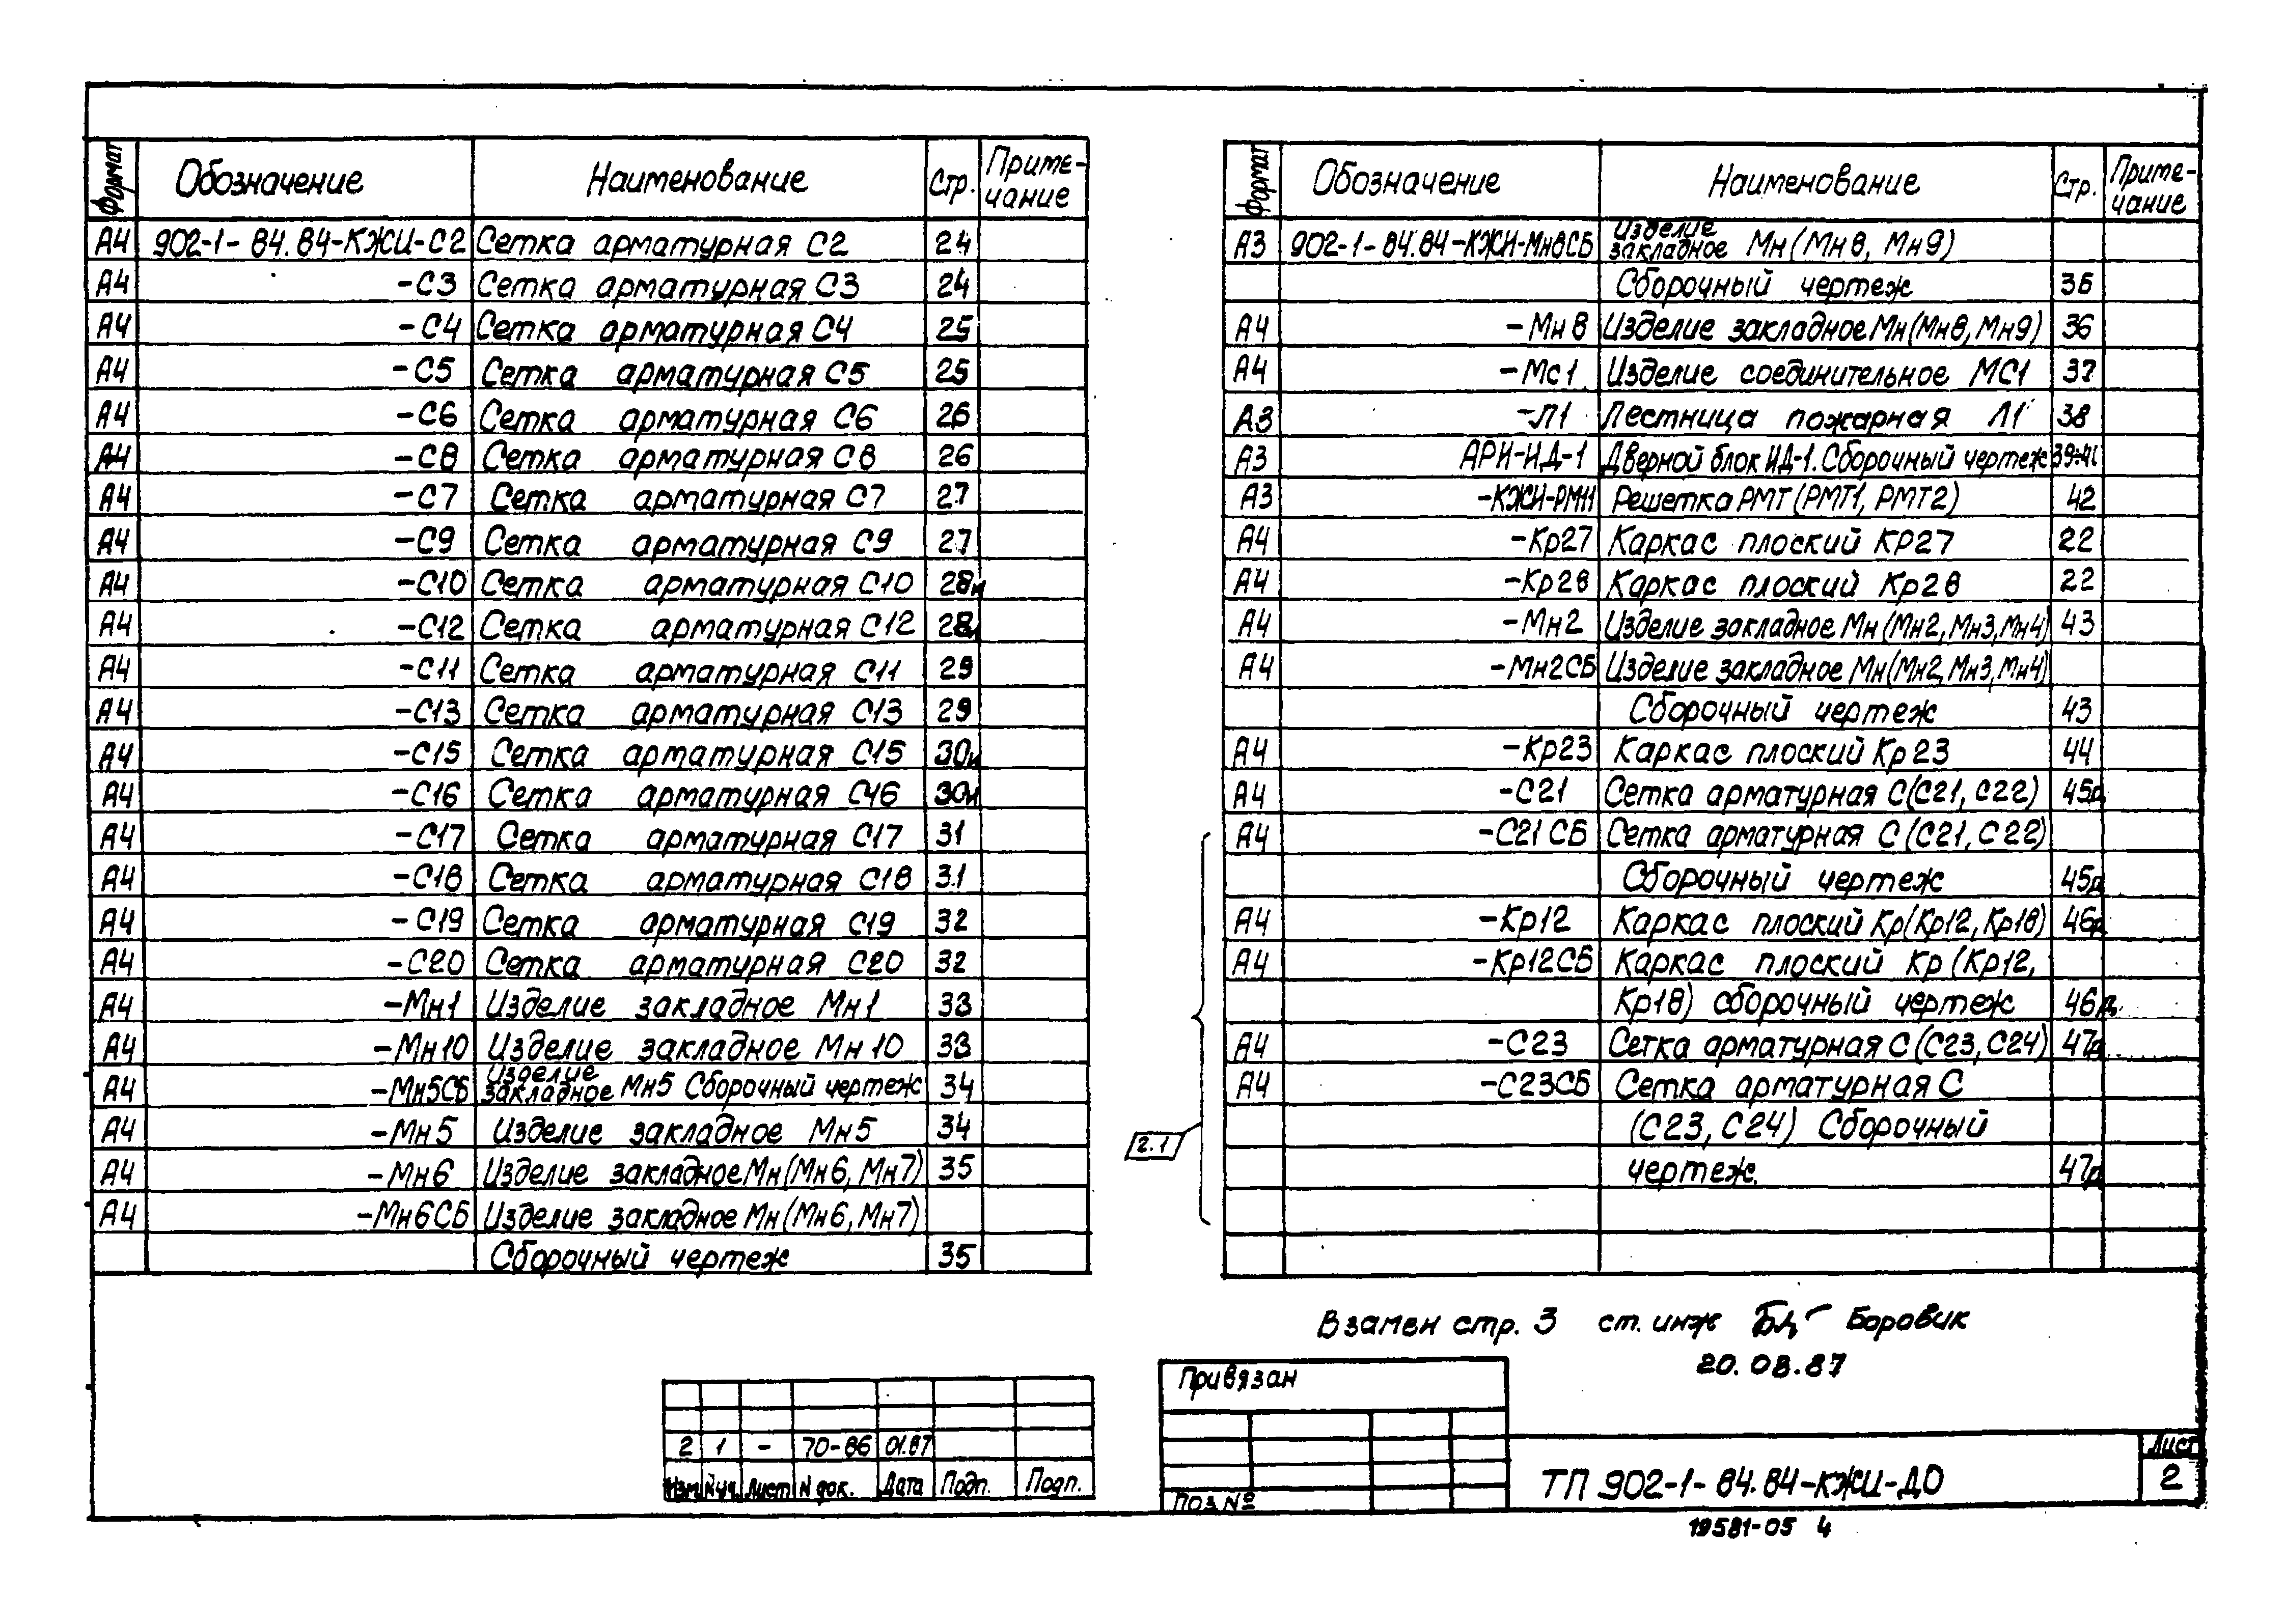 Формат Обозначение Наименование Стр. Приме-
чание
А4 902-1-84.84-КЖИ-С2 Сетка арматурная С2 24
А4 -С3 Сетка арматурная С3 24
А4 -С4 Сетка арматурная С4 25
А4 -С5 Сетка арматурная С5 25
А4 -С6 Сетка арматурная С6 26
А4 -С8 Сетка арматурная С8 26
А4 -С7 Сетка арматурная С7 27
А4 -С9 Сетка арматурная С9 27
А4 -С10 Сетка арматурная С10 28и
А4 -С12 Сетка арматурная С12 28и
А4 -С11 Сетка арматурная С11 29
А4 -С13 Сетка арматурная С13 29
А4 -С15 Сетка арматурная С15 30и
А4 -С16 Сетка арматурная С16 30и
А4 -С17 Сетка арматурная С17 31
А4 -С18 Сетка арматурная С18 31
А4 -С19 Сетка арматурная С19 32
А4 -С20 Сетка арматурная С20 32
А4 -Мн1 Изделие закладное Мн1 33
А4 -Мн10 Изделие закладное Мн10 33
А4 -Мн5СБ Изделие закладное Мн5 Сборочный чертеж 34
А4 -Мн5 Изделие закладное Мн5 34
А4 -Мн6 Изделие закладное Мн(Мн6, Мн7) 35
А4 -Мн6СБ Изделие закладное Мн(Мн6, Мн7)
Сборочный чертеж 35
Формат Обозначение Наименование Стр. Приме-
чание
А3 902-1-84.84-КЖИ-Мн8СБ Изделие закладное Мн(Мн8, Мн9)
Сборочный чертеж 36
А4 -Мн8 Изделие закладное Мн(Мн8, Мн9) 36
А4 -Мс1 Изделие соединительное МС1 37
А3 -Л1 Лестница пожарная Л1 38
А3 АРИ-ИД-1 Дверной блок ИД-1. Сборочный чертеж 39-41
А3 -КЖИ-РМТ1 Решетка РМТ(РМТ1, РМТ2) 42
А4 -Кр27 Каркас плоский КР27 22
А4 -Кр28 Каркас плоский Кр28 22
А4 -Мн2 Изделие закладное Мн(Мн2, Мн3, Мн4) 43
А4 -Мн2СБ Изделие закладное Мн(Мн2, Мн3, Мн4)
Сборочный чертеж 43
А4 -Кр23 Каркас плоский Кр23 44
А4 -С21 Сетка арматурная С(С21, С22) 45д
А4 -С21СБ Сетка арматурная С(С21, С22)
Сборочный чертеж 45д
А4 -Кр12 Каркас плоский Кр(Кр12, Кр18) 46д
А4 -Кр12СБ Каркас плоский Кр(Кр12,
Кр18) сборочный чертеж 46д
А4 -С23 Сетка арматурная С(С23, С24) 47д
А4 -С23СБ Сетка арматурная С
(С23, С24) Сборочный
чертеж. 47д
2.1
Взамен стр. 3 ст. инж Боровик
20.08.87
2 1 - 70-86 01.87
Изм N уч. Лист N док. Дата Подп. Подп.
Привязан
Поз №
ТП 902-1-84.84-КЖИ-ДО
Лист
2
19581-05 4